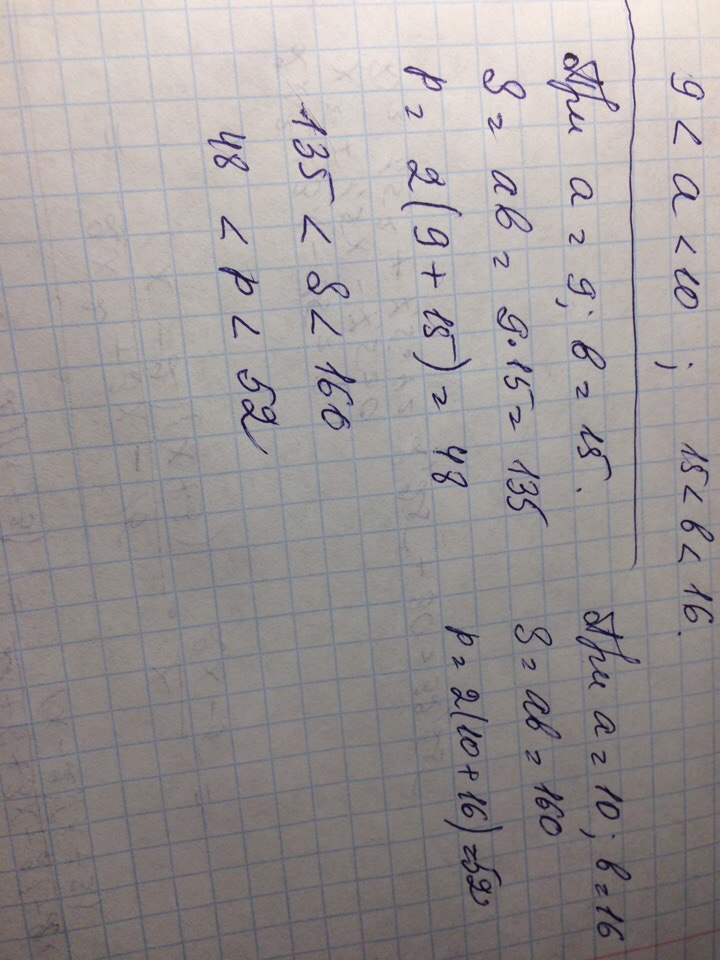 9 < a < 10 ; 15 < b < 16.
При a = 9; b = 15.
S = ab = 9·15 = 135
p = 2(9 + 15) = 48
При a = 10; b = 16
S = ab = 160
p = 2(10 + 16) = 52
135 < S < 160
48 < p < 52